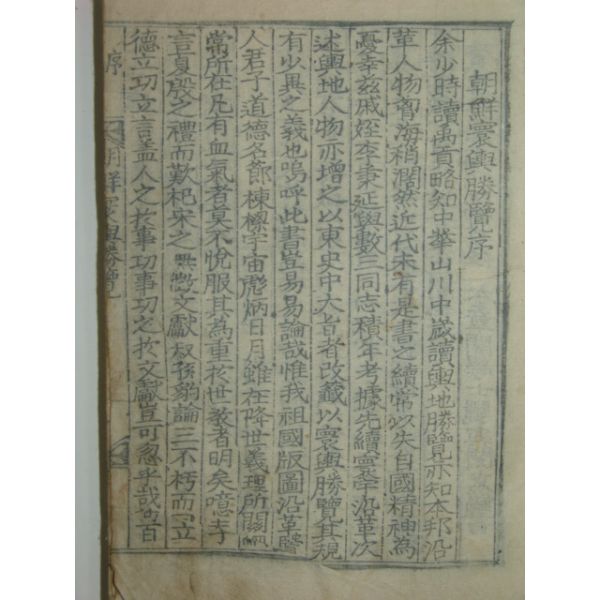 朝鮮寰輿勝覽序
余少時讀禹貢略知中華山川中歲讀輿地勝覽亦知本邦沿
革人物習海稍濶然近代未有是書之續常以失自國精神為
憂幸玆戚姪李秉延與數三同志積年考據先續寰宇沿革次
述輿地人物亦增之以東史中大旨者改籤以寰輿勝覽其規
有少異之義也嗚呼此書豈易易論哉惟我祖國版圖沿革賢
人君子道德名節棟樑宇宙彪炳日月雖在降世義理所關綱
常所在凡有血氣者莫不悅服其為重於世敎者明矣噫夫子
言夏殷之禮而歎杞宋之無徵文獻叔孫豹論三不朽而曰立
德立功立言盖人之於事功事功之於文獻豈可忽乎哉 百
序
朝鮮寰輿勝覽